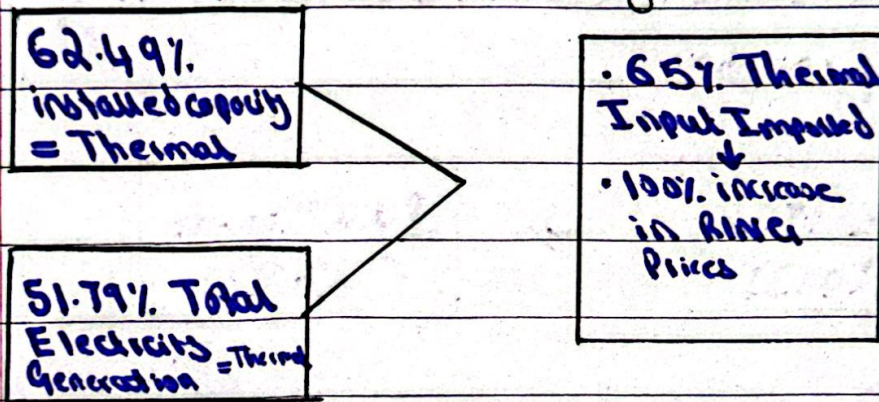 62.49%
installed capacity
= Thermal
51.79% Total
Electricity = Thermal
Generation
• 65% Thermal
Input Imported
↓
• 100% increase
in RLNG
Prices